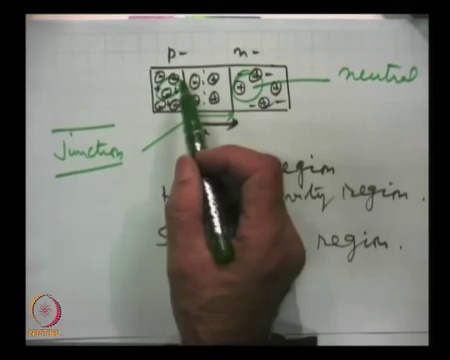 p- n-
neutral
Junction
region
region.
S region.
NPTEL